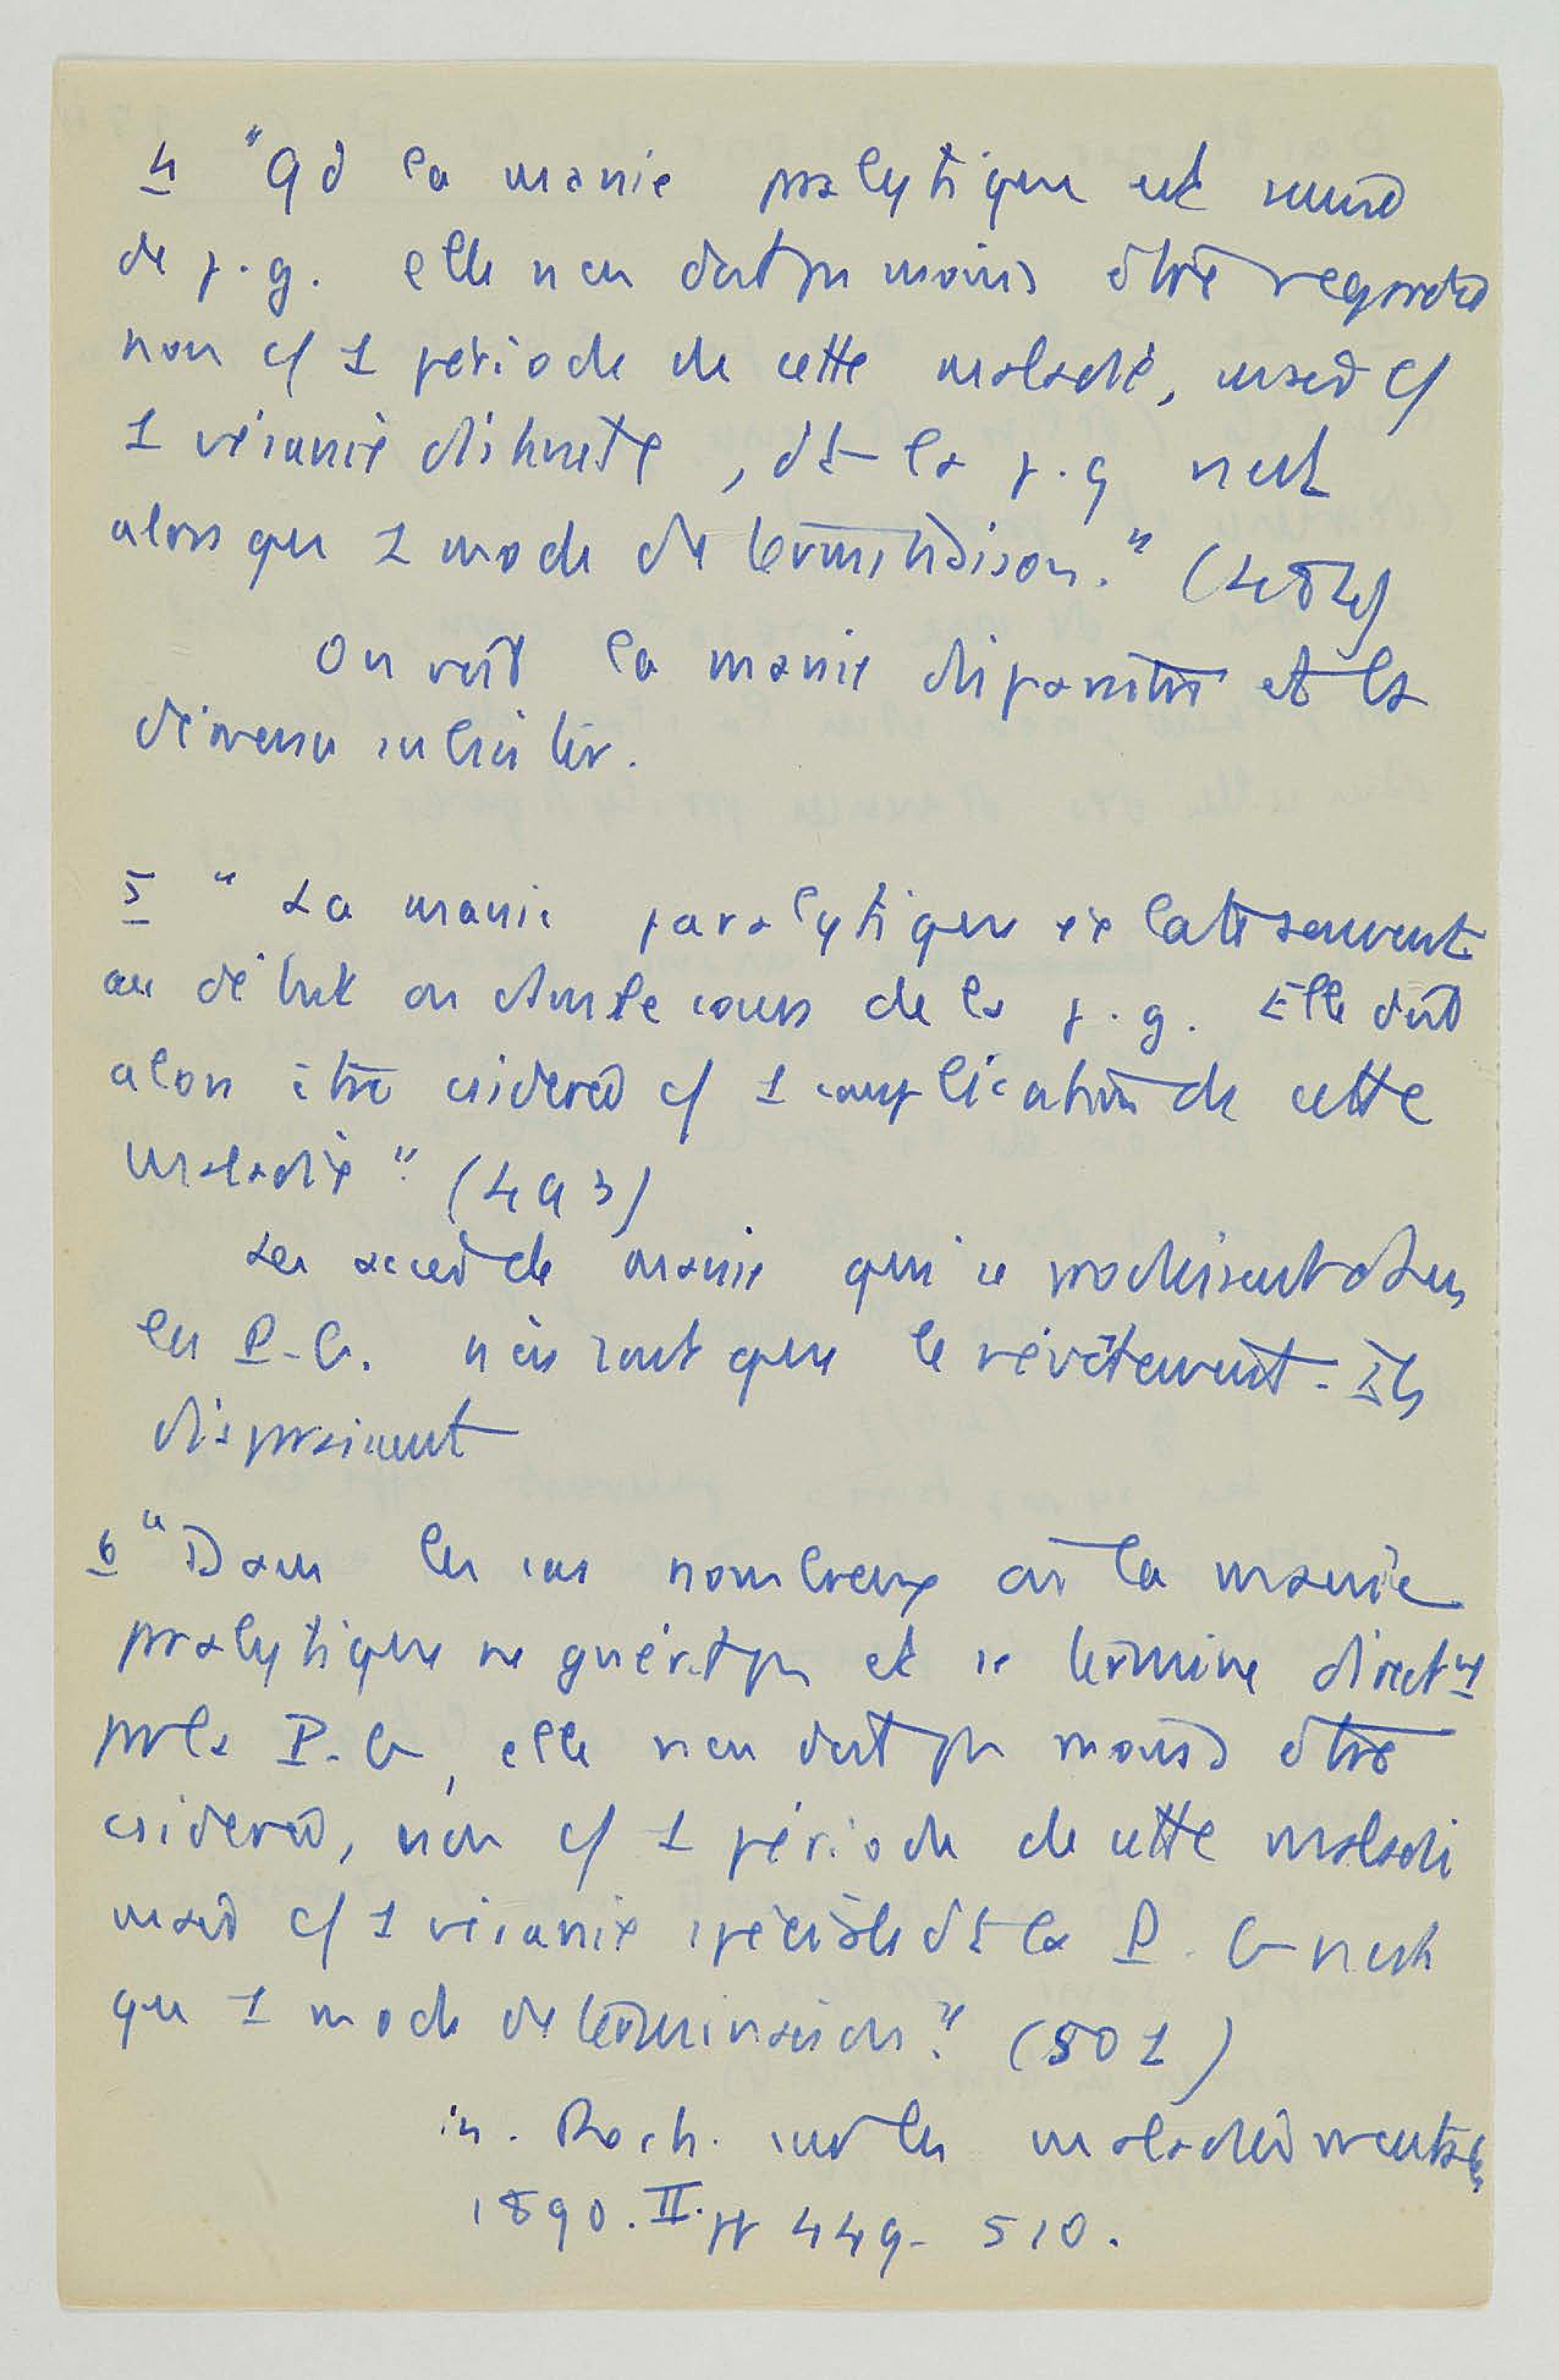 4 "Qd la manie paralytique est suivie
de p.g. elle n'en doit pas moins être regardée
non c/ 1 période de cette maladie, mais c/
1 vésanie distincte, dt la p.g n'est
alors que 1 mode de terminaison." (484)
On voit la manie disparaître et la
démence subsister.
5 "La manie paralytique éclate souvent
au début ou dans le cours de la p.g. Elle doit
alors être csidérée c/ 1 complication de cette
maladie" (493)
Les accès de manie qui se produisent dans
les P.G. n'en sont que le revêtement. Ils
disparaissent
6 "Dans les cas nombreux où la manie
paralytique ne guérit pas et se termine directmt
par la P.G, elle n'en doit pas moins être
csidérée, non c/ 1 période de cette maladie
mais c/ 1 vésanie spéciale dt la P.G n'est
que 1 mode de terminaison." (501)
in. Rech. sur les maladies mentales
1890. II. pp 449-510.